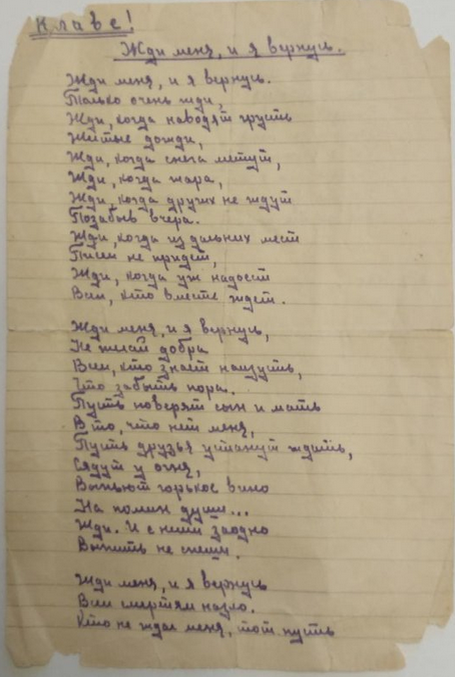 Клаве!
Жди меня, и я вернусь.
Жди меня, и я вернусь.
Только очень жди,
Жди, когда наводят грусть
Желтые дожди,
Жди, когда снега метут,
Жди, когда жара,
Жди, когда других не ждут
Позабыв вчера.
Жди, когда из дальних мест
Писем не придет,
Жди, когда уж надоест
Всем, кто вместе ждет.
Жди меня, и я вернусь,
Не желай добра
Всем, кто знает наизусть,
Что забыть пора.
Пусть поверят сын и мать
В то, что нет меня,
Пусть друзья устанут ждать,
Сядут у огня,
Выпьют горькое вино
На помин души...
Жди. И с ними заодно
Выпить не спеши.
Жди меня, и я вернусь
Всем смертям назло.
Кто не ждал меня, тот пусть